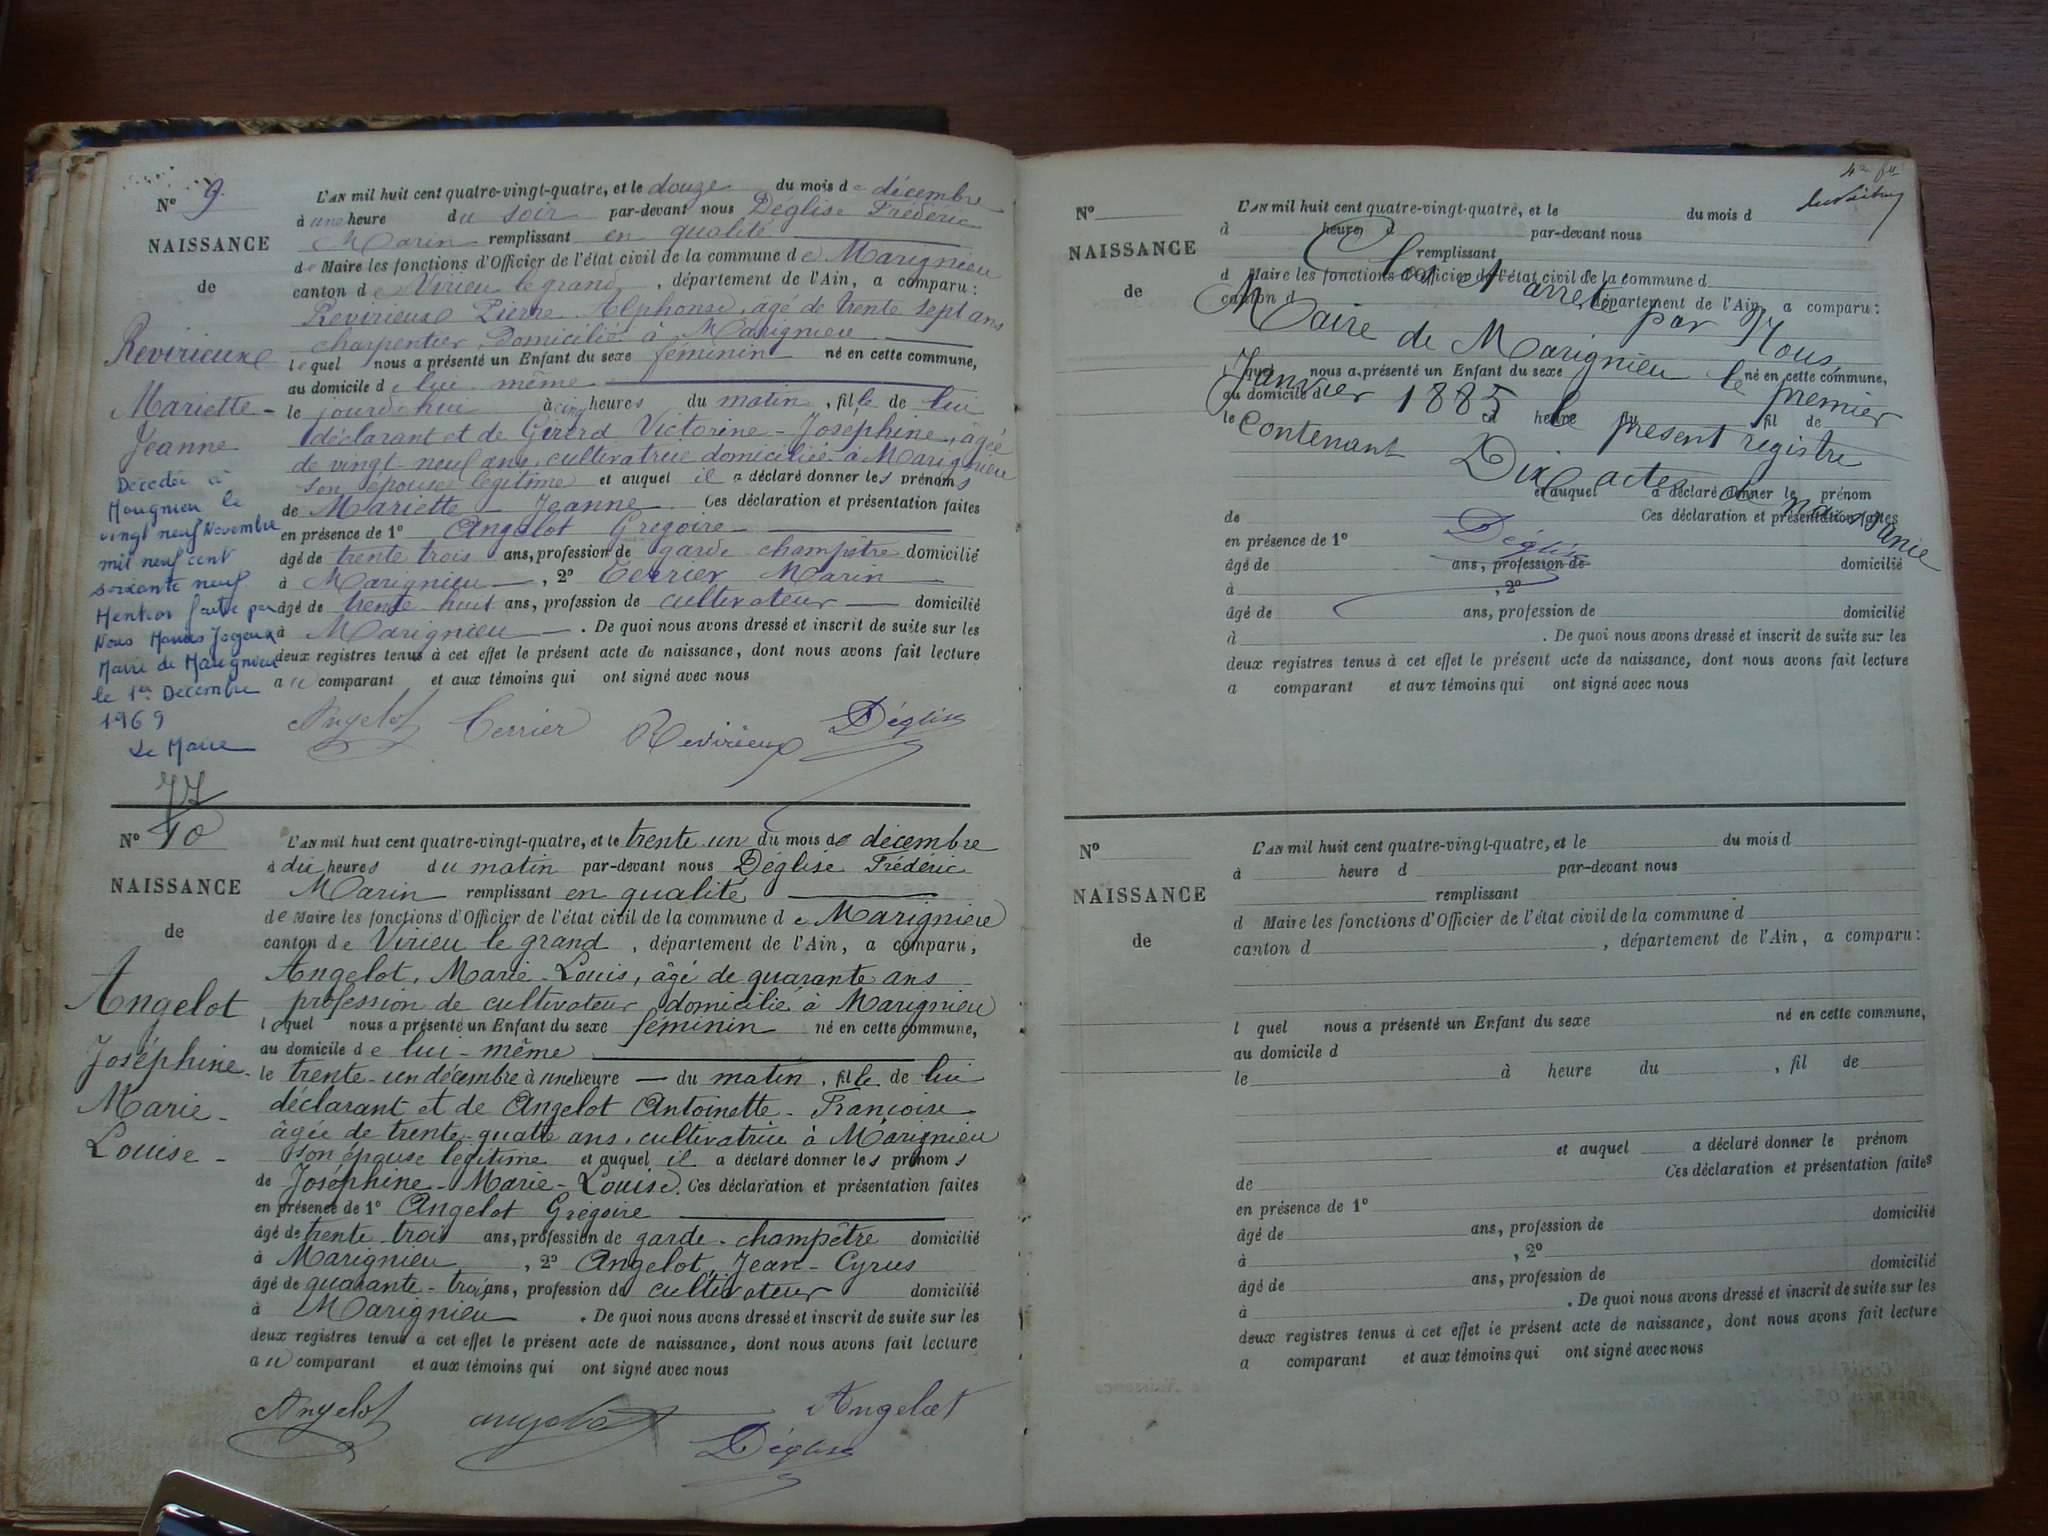 N° 9.
NAISSANCE
de
Revirieux
Mariette -
Jeanne
Décédée à
Marignieu le
vingt neuf Novembre
mil neuf cent
soixante neuf
Mention faite par
Nous
Maire de Marignieu
le 1er Décembre
1969
Le Maire
L'AN mil huit cent quatre-vingt-quatre, et le douze du mois de décembre
à une heure du soir par-devant nous Déglise Frédéric
Marin remplissant en qualité
de Maire les fonctions d'Officier de l'état civil de la commune de Marignieu
canton de Virieu le grand, département de l'Ain, a comparu:
Revirieux Pierre Alphonse, âgé de trente sept ans
charpentier, Domicilié à Marignieu
lequel nous a présenté un Enfant du sexe féminin né en cette commune,
au domicile de lui-même
le jourdehui à cinq heures du matin, fille de lui
déclarant et de Girerd Victorine-Joséphine, âgée
de vingt-neuf ans, cultivatrice domiciliée à Marignieu
son épouse légitime et auquel il a déclaré donner les prénoms
de Mariette - Jeanne - Ces déclaration et présentation faites
en présence de 1° Angelot Grégoire
âgé de trente trois ans, profession de garde champêtre domicilié
à Marignieu, 2° Terrier Marin
âgé de trente huit ans, profession de cultivateur domicilié
à Marignieu. De quoi nous avons dressé et inscrit de suite sur les
deux registres tenus à cet effet le présent acte de naissance, dont nous avons fait lecture
au comparant et aux témoins qui ont signé avec nous
Angelot Terrier Revirieux Déglise
N° 10
NAISSANCE
de
Angelot
Joséphine -
Marie -
Louise -
L'AN mil huit cent quatre-vingt-quatre, et le trente un du mois de décembre
à dix heures du matin par-devant nous Déglise Frédéric
Marin remplissant en qualité
de Maire les fonctions d'Officier de l'état civil de la commune de Marignieu
canton de Virieu le grand, département de l'Ain, a comparu,
Angelot, Marie-Louis, âgé de quarante ans
profession de cultivateur domicilié à Marignieu
lequel nous a présenté un Enfant du sexe féminin né en cette commune,
au domicile de lui-même
le trente-un décembre à une heure du matin, fille de lui
déclarant et de Angelot Antoinette-Françoise
âgée de trente-quatre ans, cultivatrice à Marignieu
son épouse légitime et auquel il a déclaré donner les prénoms
de Joséphine-Marie-Louise. Ces déclaration et présentation faites
en présence de 1° Angelot Grégoire
âgé de trente trois ans, profession de garde-champêtre domicilié
à Marignieu, 2° Angelot, Jean-Cyrus
âgé de quarante-trois ans, profession de cultivateur domicilié
à Marignieu. De quoi nous avons dressé et inscrit de suite sur les
deux registres tenus à cet effet le présent acte de naissance, dont nous avons fait lecture
au comparant et aux témoins qui ont signé avec nous
Angelot Angelot Angelot
Déglise
N°
NAISSANCE
de
L'AN mil huit cent quatre-vingt-quatre, et le du mois d
à heure d par-devant nous
remplissant
d Maire les fonctions d'Officier de l'état civil de la commune d
canton d département de l'Ain, a comparu:
l quel nous a présenté un Enfant du sexe né en cette commune,
au domicile d
le à heure du fil de
et auquel a déclaré donner le prénom
de Ces déclaration et présentation faites
en présence de 1°
âgé de ans, profession de domicilié
à , 2°
âgé de ans, profession de domicilié
à . De quoi nous avons dressé et inscrit de suite sur les
deux registres tenus à cet effet le présent acte de naissance, dont nous avons fait lecture
a comparant et aux témoins qui ont signé avec nous
Clos et arrêté par Nous,
Maire de Marignieu le premier
Janvier 1885 le présent registre
contenant Dix actes de naissance
Déglise
N°
NAISSANCE
de
L'AN mil huit cent quatre-vingt-quatre, et le du mois d
à heure d par-devant nous
remplissant
d Maire les fonctions d'Officier de l'état civil de la commune d
canton d , département de l'Ain, a comparu:
l quel nous a présenté un Enfant du sexe né en cette commune,
au domicile d
le à heure du , fil de
et auquel a déclaré donner le prénom
de Ces déclaration et présentation faites
en présence de 1°
âgé de ans, profession de domicilié
à , 2°
âgé de ans, profession de domicilié
à . De quoi nous avons dressé et inscrit de suite sur les
deux registres tenus à cet effet le présent acte de naissance, dont nous avons fait lecture
a comparant et aux témoins qui ont signé avec nous